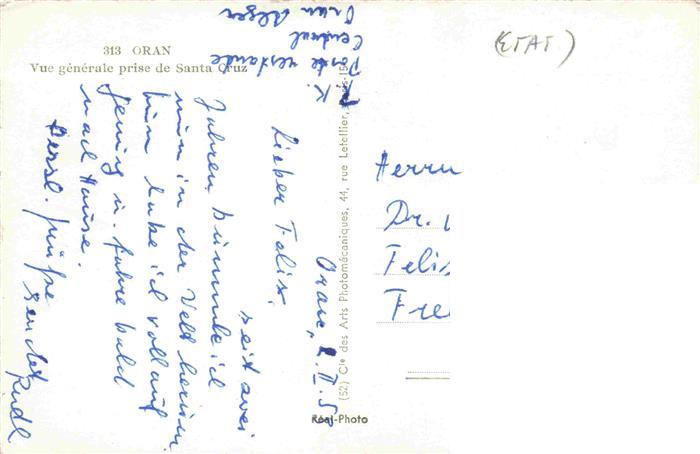 313 ORAN
Vue générale prise de Santa Cruz
R. K.
Poste restande
Central
Oran Alger
Oran, 2. II. 5
Lieber Felix,
seit zwei
Jahren bummle ich
nun in der Welt herum.
Nun habe ich vollauf
genug u. fahre bald
nach Hause.
Herzl. Grüße
sendet
Rudl
(52) Cie des Arts Photomécaniques, 44, rue Letellier, Paris-15e
Réal-Photo
(ETAT)
Herrn
Dr.
Felix
Fre